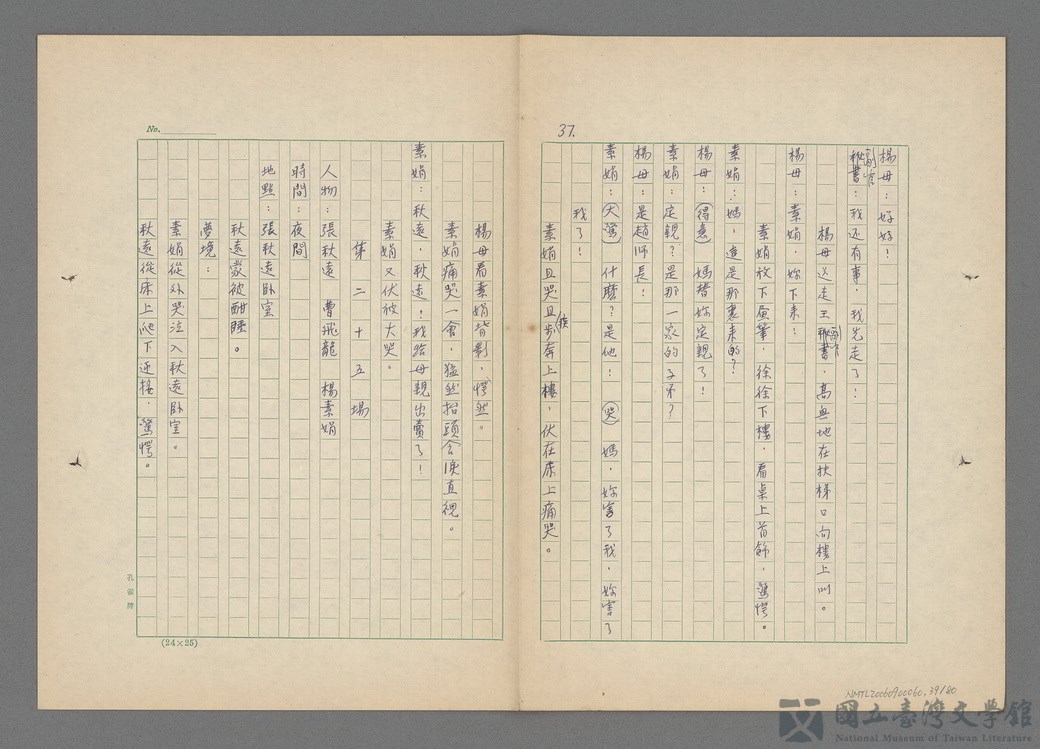 37.
楊母：好好！
副官
秘書：我还有事，我先走了！
楊母送走王秘書，高興地在扶梯口向樓上叫。
副官
楊母：素娟，妳下來！
素娟放下畫筆，徐徐下樓，看桌上首飾，驚愕。
素娟：媽，這是那裏來的？
楊母：(得意)媽替妳定親了！
素娟：定親？是那一家的子弟？
楊母：是趙師長！
素娟：(大驚)什麼？是他！(哭)媽，妳害了我，妳害了
我了！
素娟且哭且步奔上樓，伏在床上痛哭。
疾
楊母看素娟背影，愕然。
素娟痛哭一會，猛然抬頭含淚直視。
素娟：秋遠，秋遠！我給母親出賣了！
素娟又伏被大哭。
第二十五場
人物：張秋遠 曹飛龍 楊素娟
時間：夜間
地點：張秋遠臥室
秋遠蒙被酣睡。
夢境：
素娟從外哭泣入秋遠臥室。
秋遠從床上爬下迎接，驚愕。
No.
孔雀牌
(24×25)
NMTL20060900060.39/80
國立臺灣文學館
National Museum of Taiwan Literature